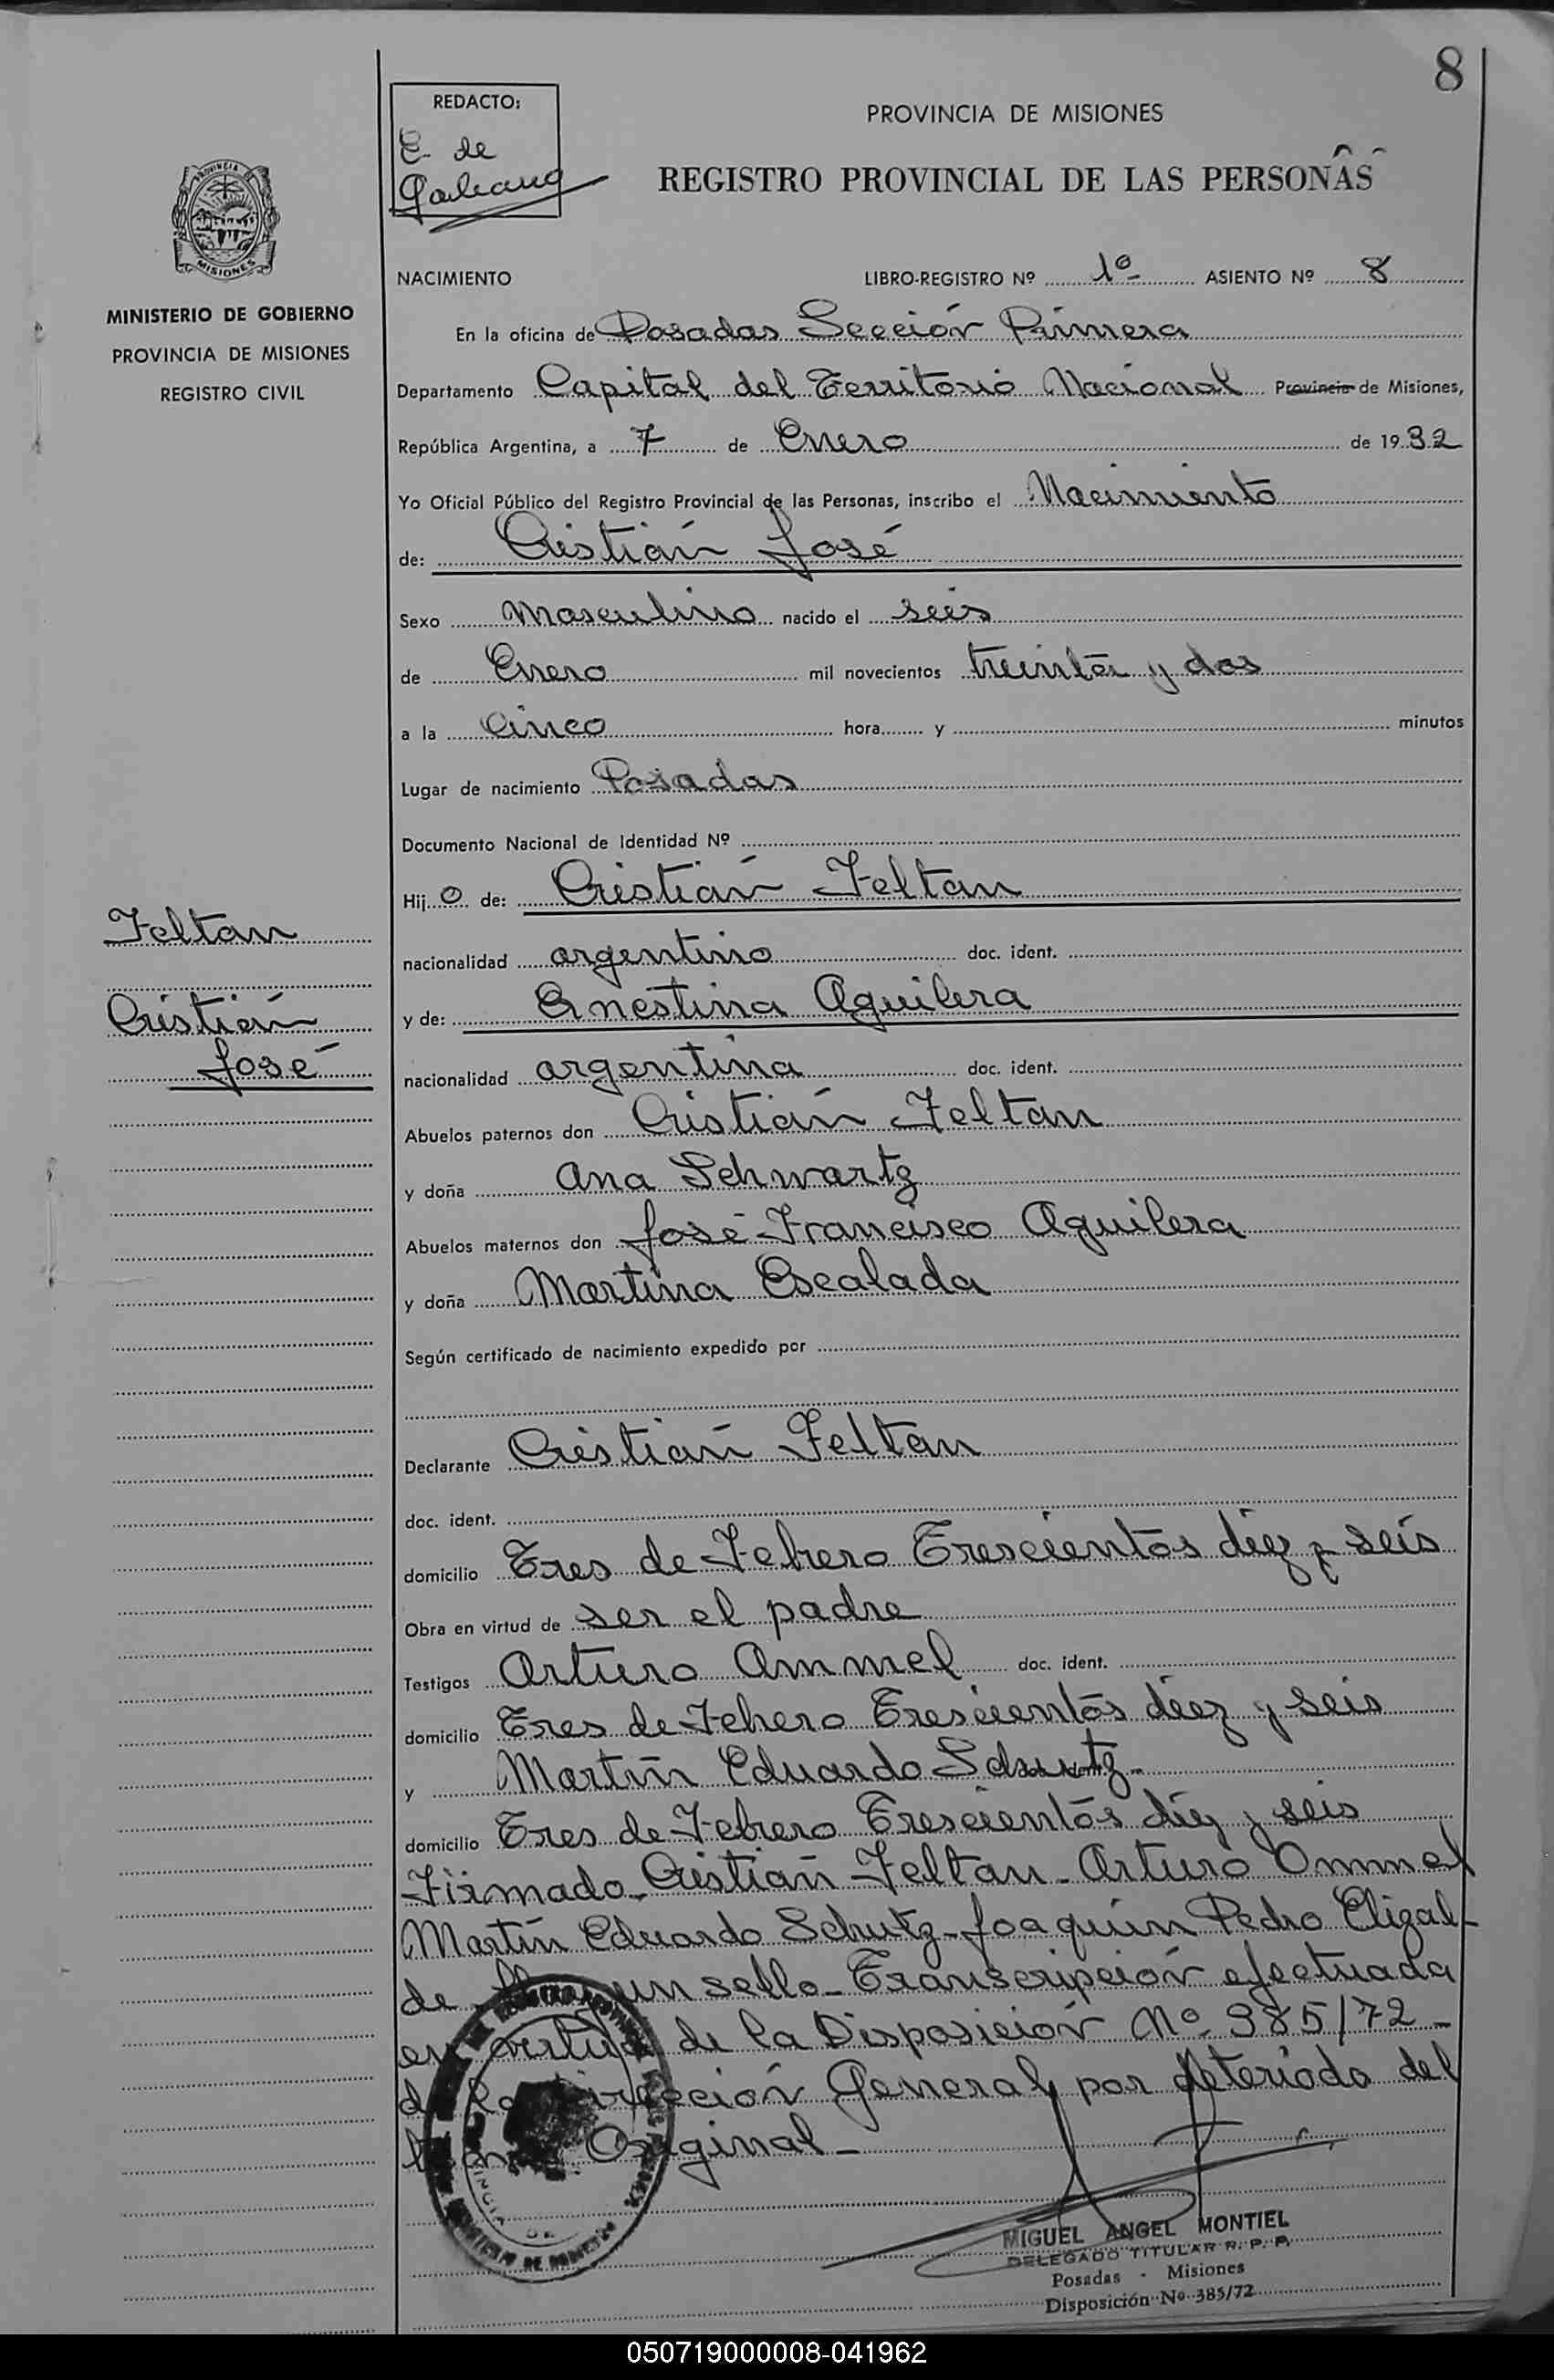 8
REDACTO:
E. de
Galeano
PROVINCIA DE MISIONES
REGISTRO PROVINCIAL DE LAS PERSONAS
PROVINCIA DE
MISIONES
MINISTERIO DE GOBIERNO
PROVINCIA DE MISIONES
REGISTRO CIVIL
NACIMIENTO LIBRO-REGISTRO Nº 1º ASIENTO Nº 8
En la oficina de Posadas Sección Primera
Departamento Capital del Territorio Nacional Provincia de Misiones,
República Argentina, a 7 de Enero de 1932
Yo Oficial Público del Registro Provincial de las Personas, inscribo el Nacimiento
de: Cristián José
Sexo Masculino nacido el seis
de Enero mil novecientos treinta y dos
a la cinco hora y minutos
Lugar de nacimiento Posadas
Documento Nacional de Identidad Nº
Hij o de: Cristián Feltan
nacionalidad argentino doc. ident.
y de: Ernestina Aguilera
nacionalidad argentina doc. ident.
Abuelos paternos don Cristián Feltan
y doña Ana Schwartz
Abuelos maternos don José Francisco Aguilera
y doña Martina Escalada
Según certificado de nacimiento expedido por
Declarante Cristián Feltan
doc. ident.
domicilio Tres de Febrero Trescientos diez y seis
Obra en virtud de ser el padre
Testigos Arturo Ammel doc. ident.
domicilio Tres de Febrero Trescientos diez y seis
y Martín Eduardo Schutz
domicilio Tres de Febrero Trescientos diez y seis
Firmado Cristián Feltan - Arturo Ommel
Martín Eduardo Schutz - Joaquín Pedro Elizal-
de un sello - Transcripción efectuada
en virtud de la Disposición Nº 385/72 -
de la Dirección General por deterioro del
Original -
Feltan
Cristián
José
MIGUEL ANGEL MONTIEL
DELEGADO TITULAR R. P. P.
Posadas - Misiones
Disposición Nº 385/72
050719000008-041962